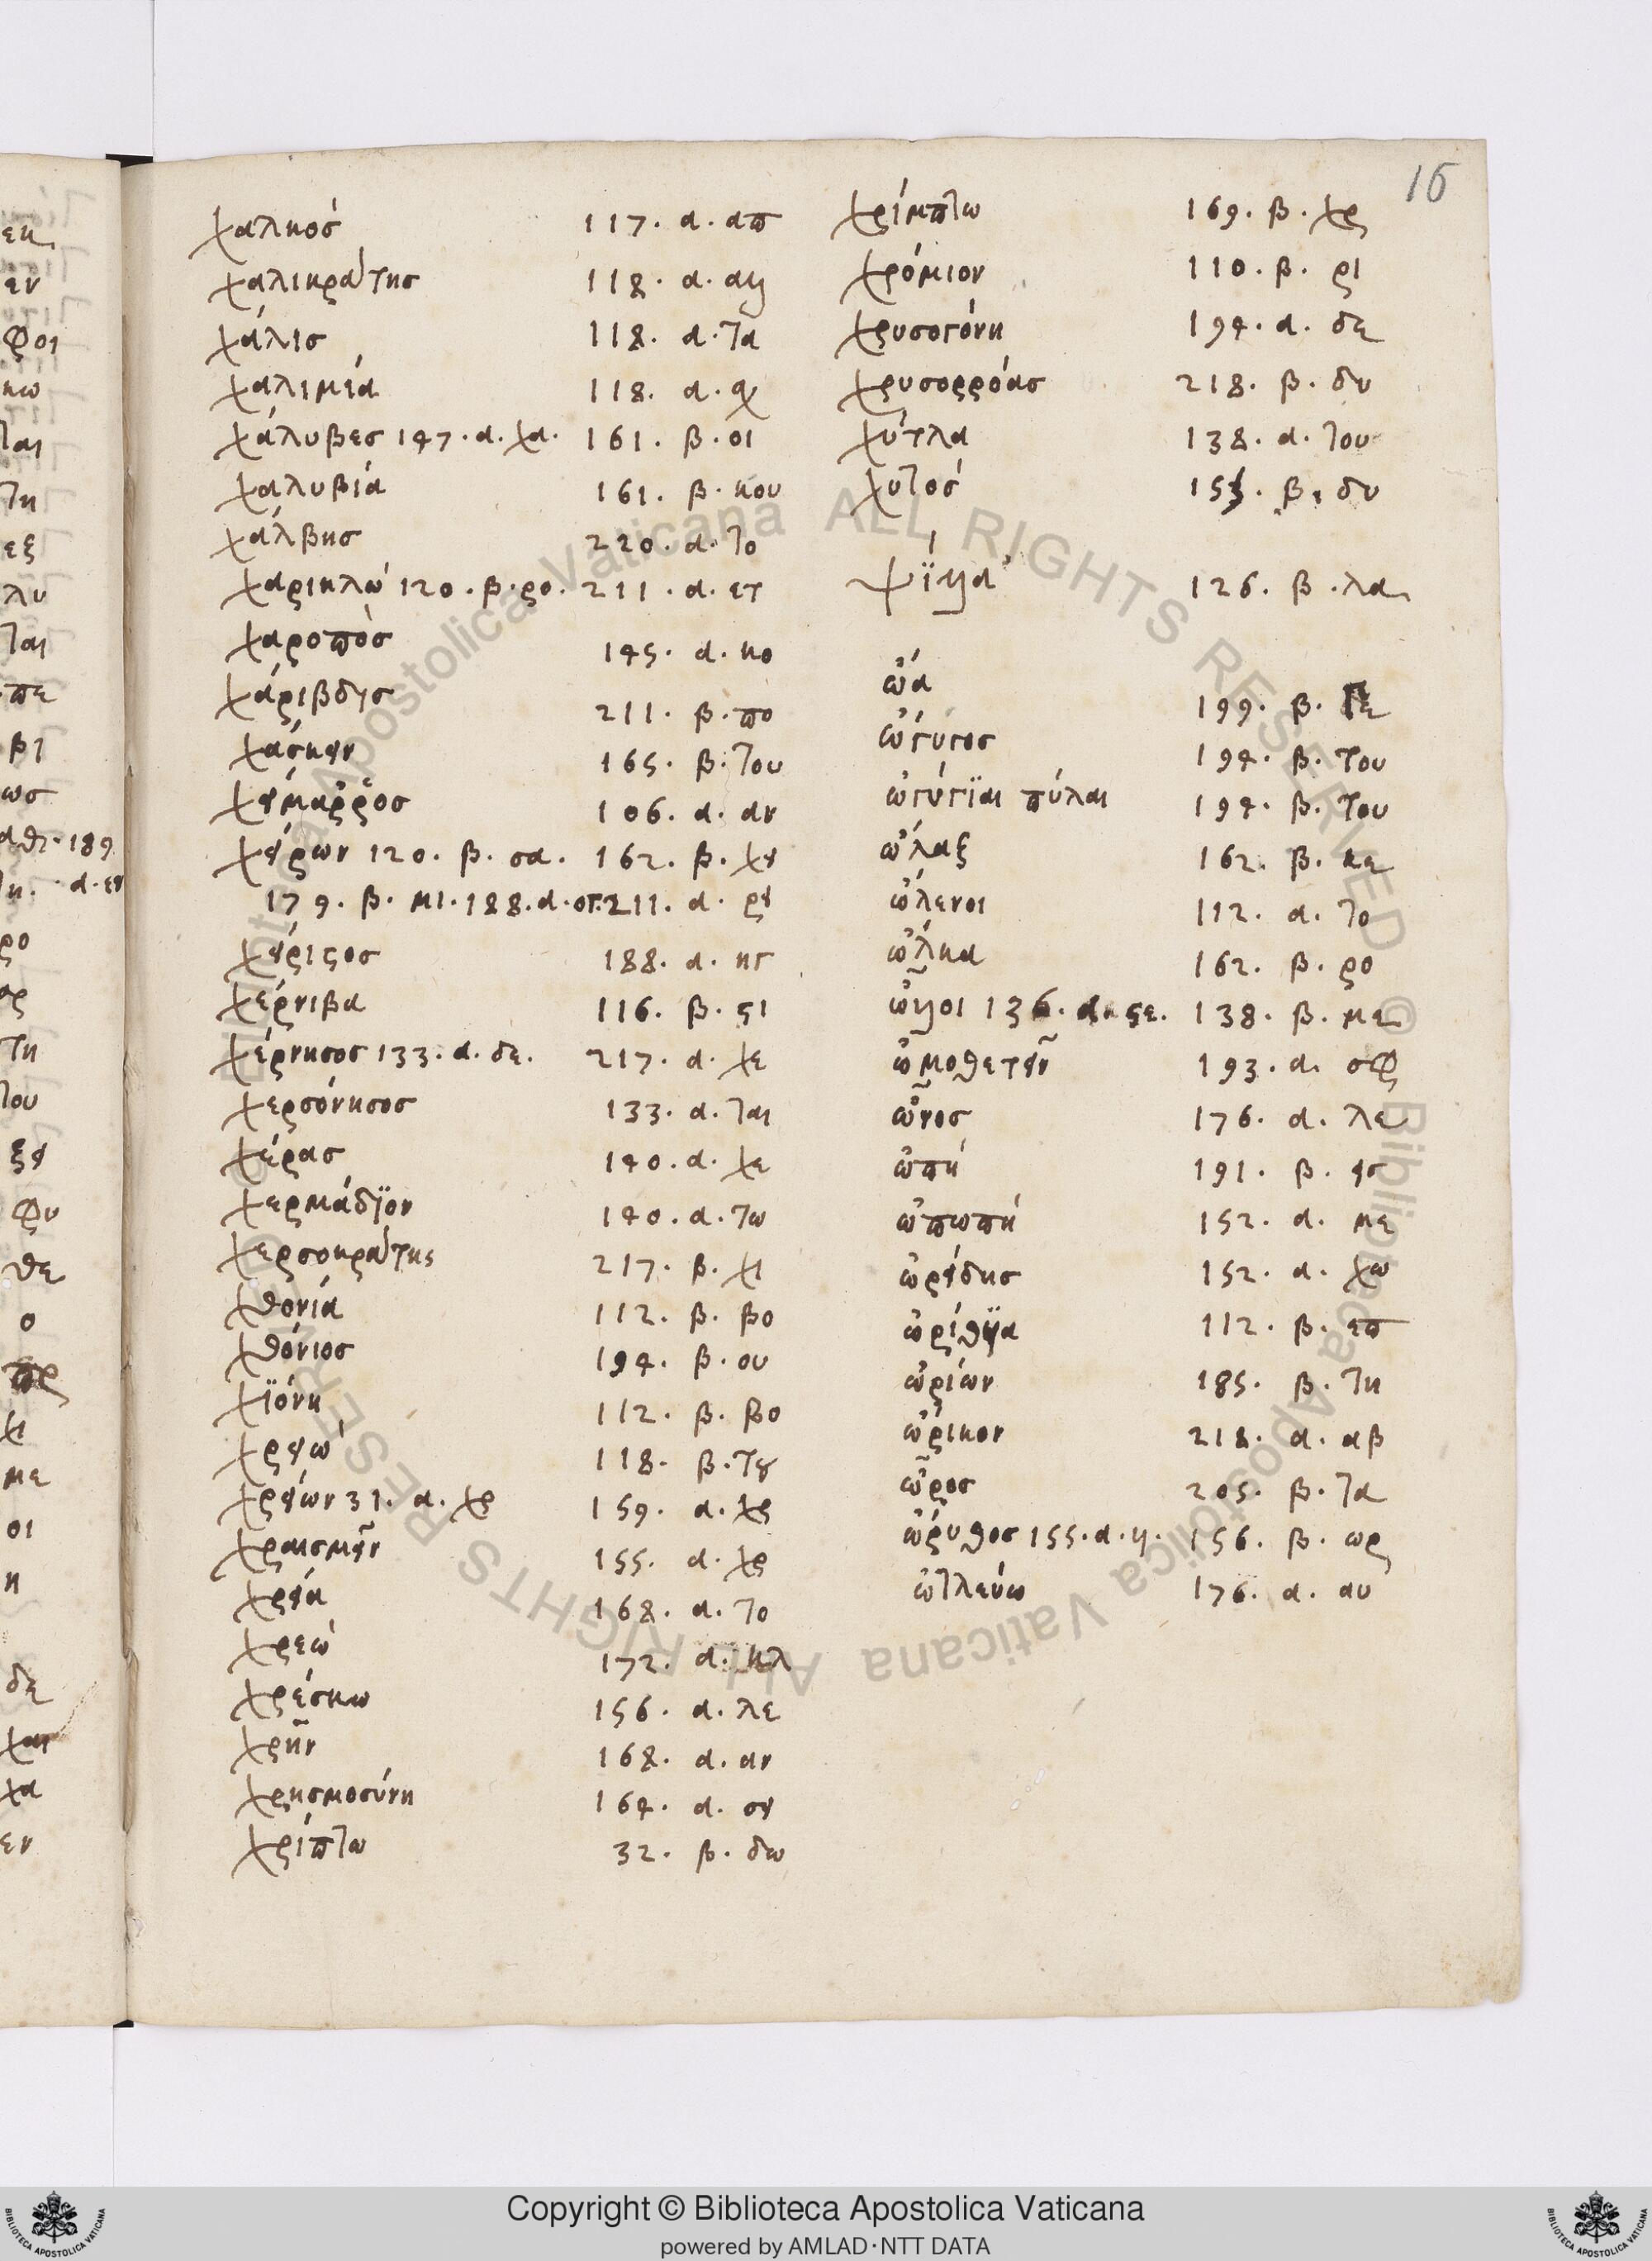 16
χαλκός 117. α. απ
χαλικράτης 118. α. αλλ
χάλις 118. α. τα
χαλιμιά 118. α.
χάλυβες 147. α. χα. 161. β. οι
χαλυβιά 161. β. κου
χάλβης 220. α. το
χαρικλώ 120. β. ρο. 211. α. ετ
χαροπός 145. α. κο
χάριβδις 211. β. πο
χάσκειν 165. β. του
χείμαῤῥος 106. α. αν
χείρων 120. β. σα. 162. β. χει
179. β. μι. 188. α. 211. α. ρει
χείριστος 188. α.
χέρνιβα 116. β. στι
χέρνησος 133. α. δε. 217. α. χε
χερσόνησος 133. α. ται
χέρας 140. α. χε
χερμάδϊον 140. α. τω
χερσοκράτης 217. β. χι
χθονιά 112. β. βο
χθόνιος 194. β. ου
χϊόνη 112. β. βο
χρειώ 118. β. του
χρειών 31. α. χρ 159. α. χρ
χραισμεῖν 155. α. χρ
χρειά 168. α. το
χρεώ 172. α. κλ
χρέσκω 156. α. λε
χρῆν 168. α. αν
χρησμοσύνη 164. α. σει
χρίπτω 32. β. δω
χρίμπτω 169. β. χρ
χρόμιον 110. β. ρι
χρυσογόνη 194. α. δε
χρυσορρόας 218. β. δυ
χύτλα 138. α. του
χυτός 153. β. δυ
126. β. λα
ὠά 199. β.
ὠγύγος 194. β. του
ὠγύγϊαι πύλαι 194. β. του
ὦλαξ 162. β. κε
ὤλενοι 112. α. το
ὦλκα 162. β. ρο
ὦλλοι 136. α. στε. 138. β. με
ὠμοθετεῖν 193. α. σφ
ὦνος 176. α. λε
ὠπή 191. β. εισ
ὠπωπή 152. α. με
ὠρείδης 152. α. χω
ὠρίθϋια 112. β. επ
ὠρίων 185. β. τη
ὤρικον 218. α. αβ
ὦρος 205. β. τα
ὤρυθος 155. α. η. 156. β. ωρ
ὠτλεύω 176. α. αυ
Copyright © Biblioteca Apostolica Vaticana
powered by AMLAD·NTT DATA